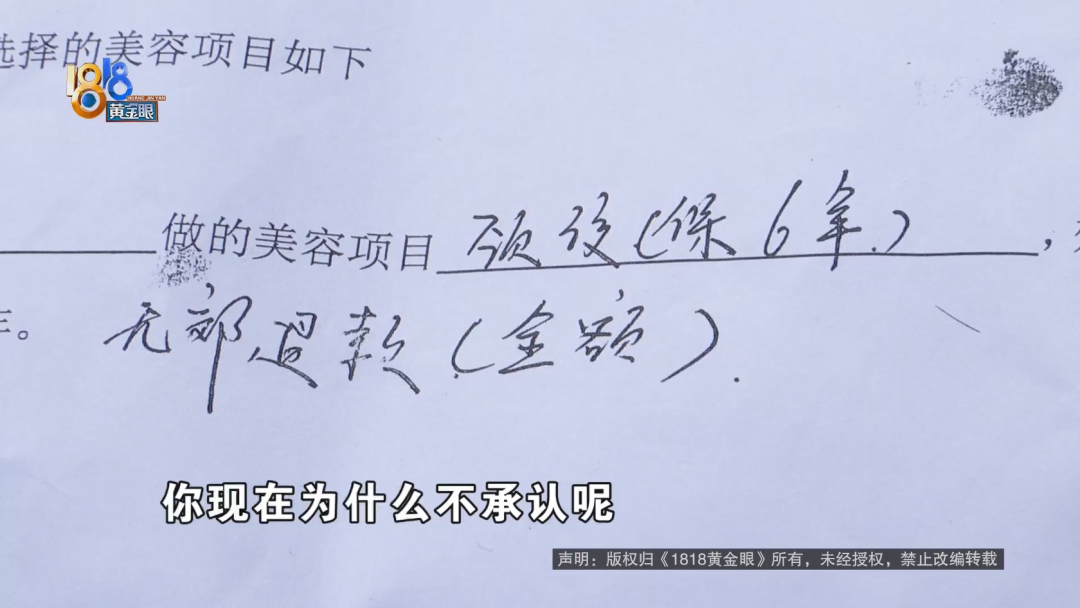 选择的美容项目如下
1818
HUANG JIN YAN
黄金眼
做的美容项目 颈纹(保6年),
年。无郊退款(全额).
你现在为什么不承认呢
声明：版权归《1818黄金眼》所有，未经授权，禁止改编转载